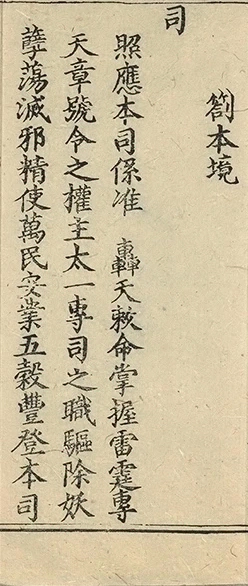 箚本境
司
照應本司係准 轟天敕命掌握雷霆專
天章號令之權主太一專司之職驅除妖
孽蕩滅邪精使萬民安業五穀豐登本司